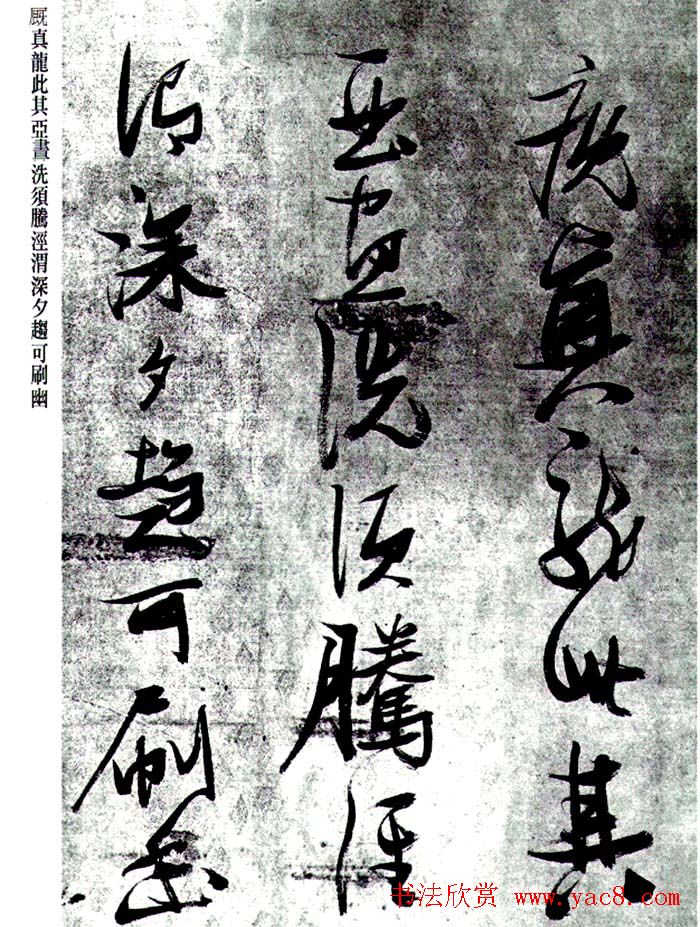 廐真龍此其
亞晝洗須騰涇
渭深夕趨可刷幽
厩真龍此其亞晝洗須騰涇渭深夕趨可刷幽
书法欣赏 www.yac8.com